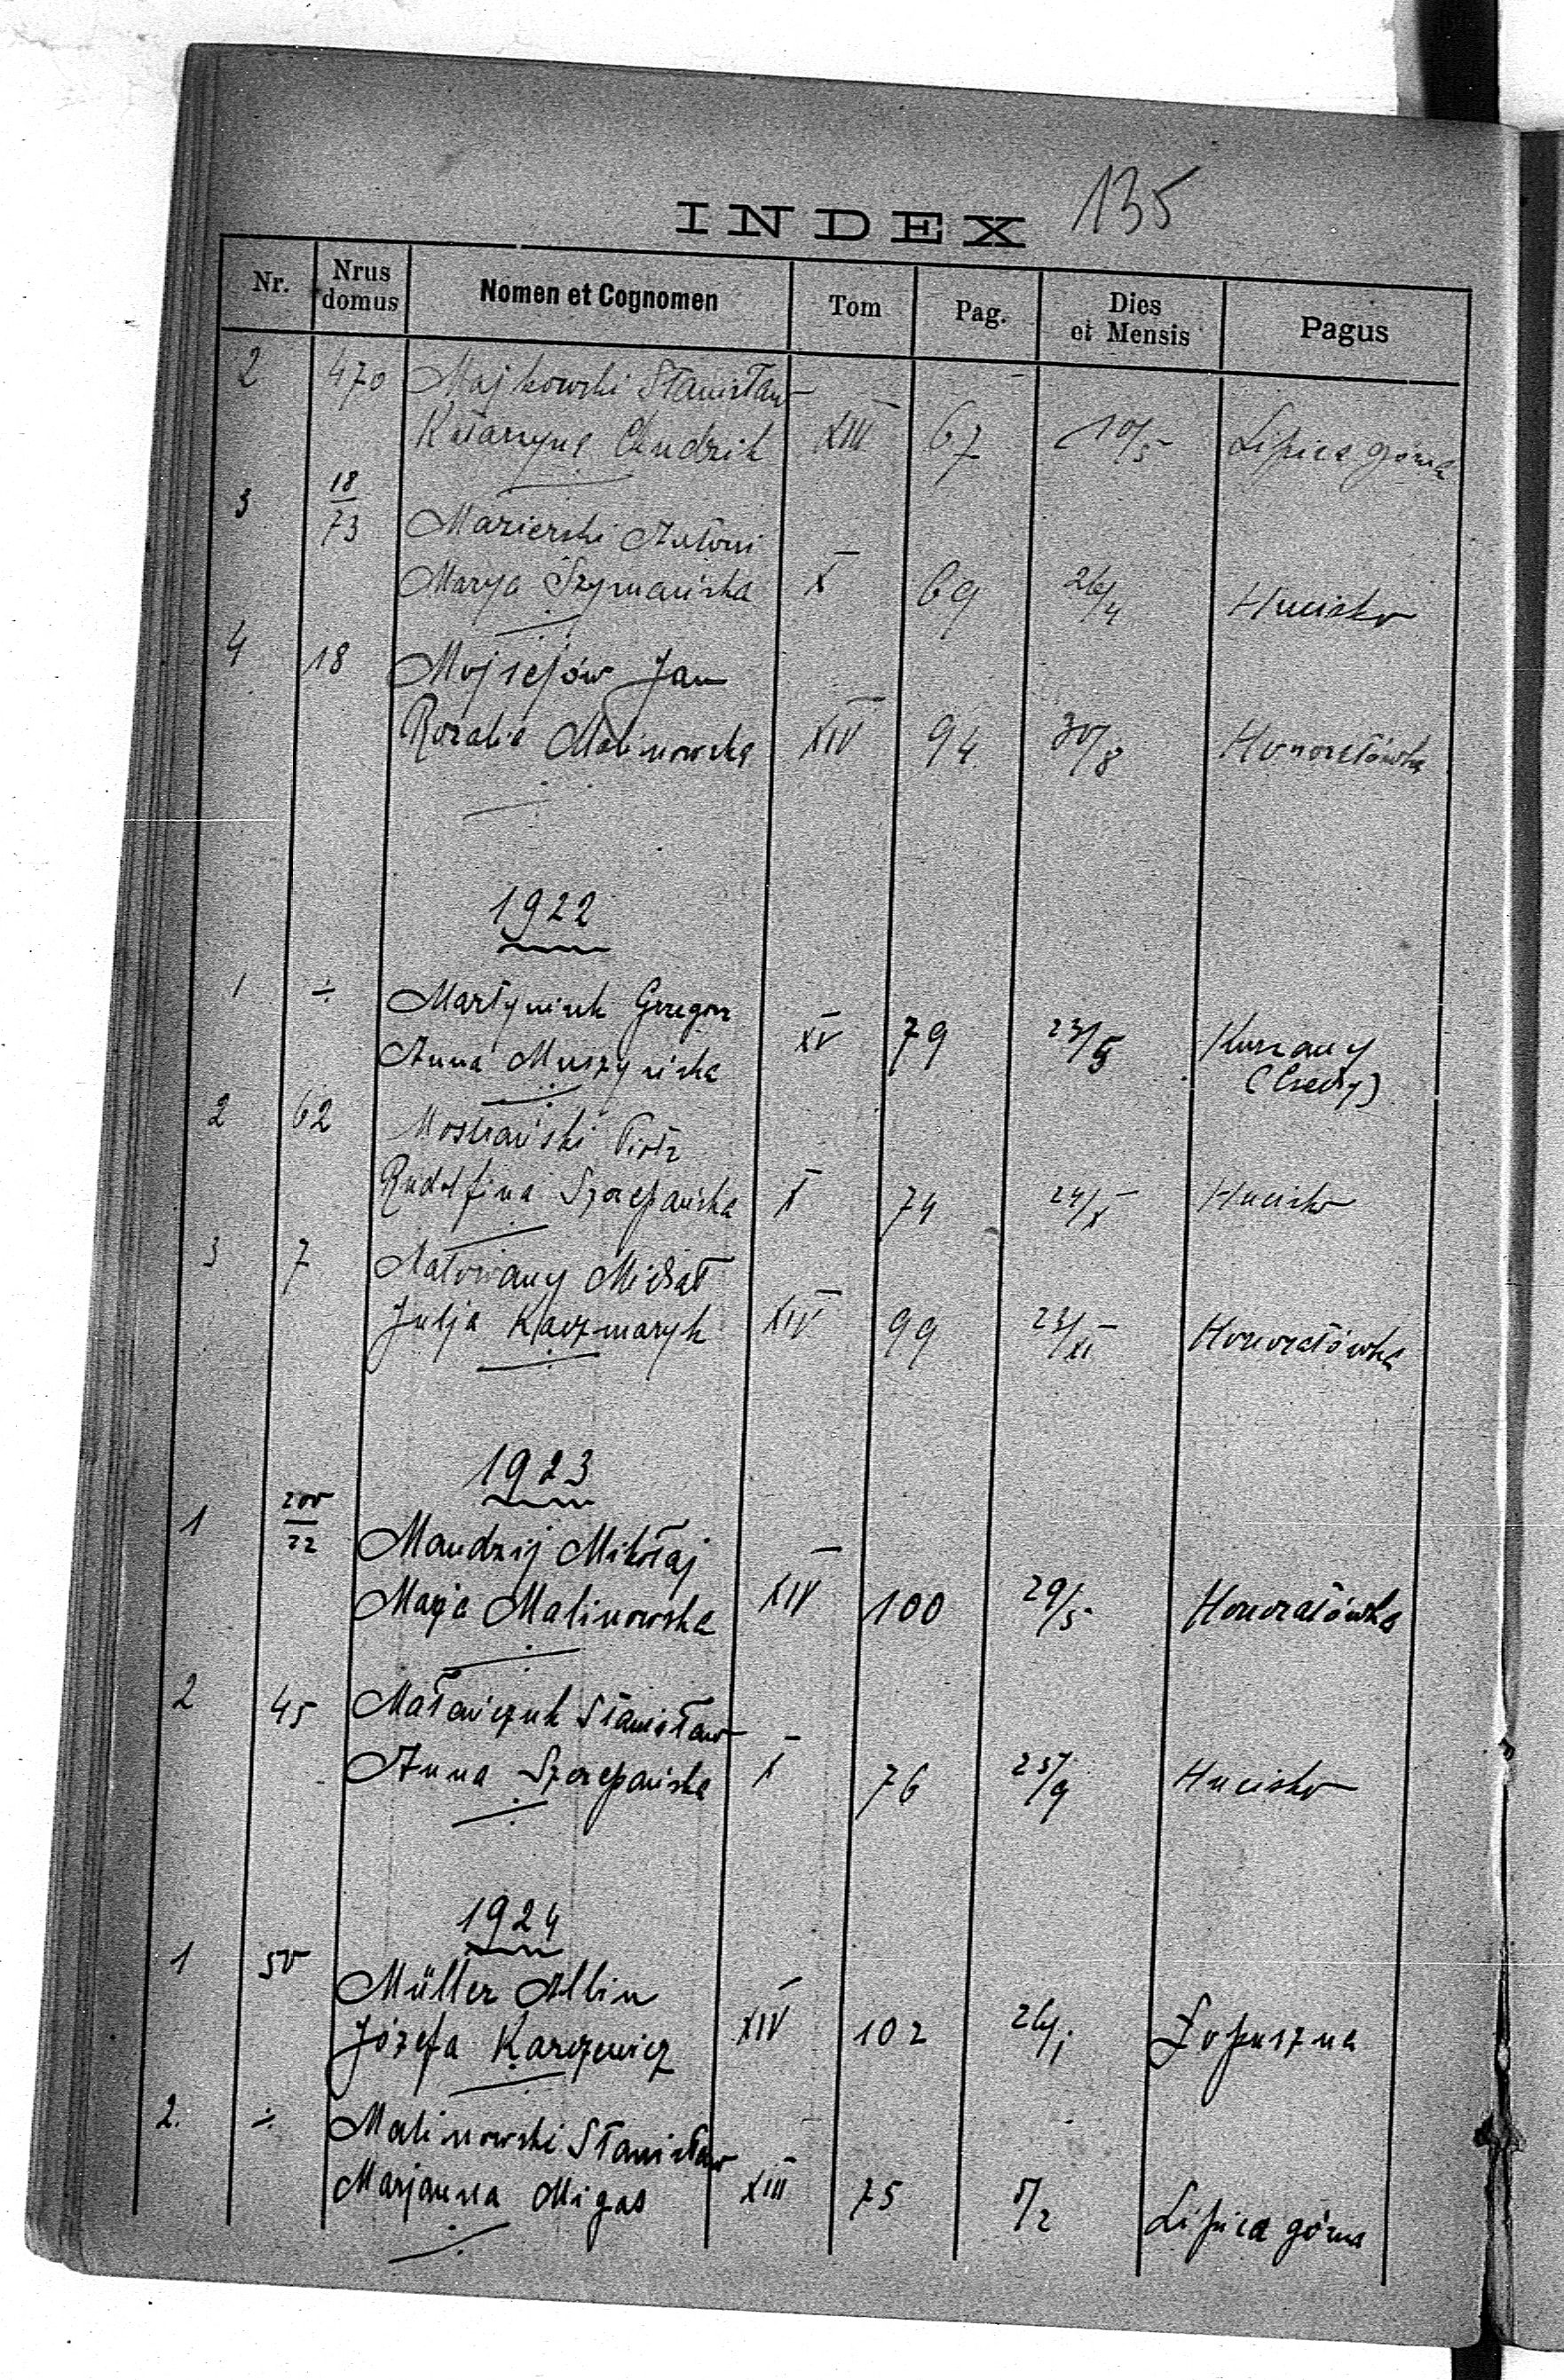 INDEX 135
Nr. Nrus domus Nomen et Cognomen Tom Pag. Dies et Mensis Pagus
2 470 Majkowski Stanisław
Katarzyna XIII 67 10/5 Lipica górna
3 18/73 Mazierski Antoni
Marya Szymańska X 69 26/4 Hucisko
4 18 Mojsejów Jan
Rozalia Malinowska XIV 94 30/8 Honoratówka
1922
1 ÷ Martyniuk Grzegorz
Anna Muszyńska XV 79 23/5
2 62 Piotr
Rudolfina Szczepańska X 74 24/X Hucisko
3 7 Michał
Julja Kaczmaryk XIV 99 23/XI Honoratówka
1923
1 200/22 Mandzij Mikołaj
Marja Malinowska XIV 100 29/5 Honoratówka
2 45 Matańczuk Stanisław
Anna Szczepańska X 76 25/9 Hucisko
1924
1 50 Müller Albin
Józefa Karczewicz XIV 102 26/1 Łopuszna
2. ÷ Malinowski Stanisław
Marjanna Migas XIII 75 5/2 Lipica górna